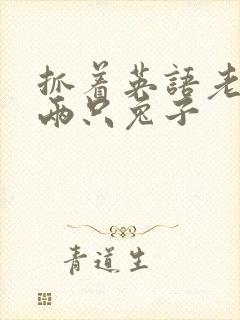 抓着英語老
兩只兔子
青道生